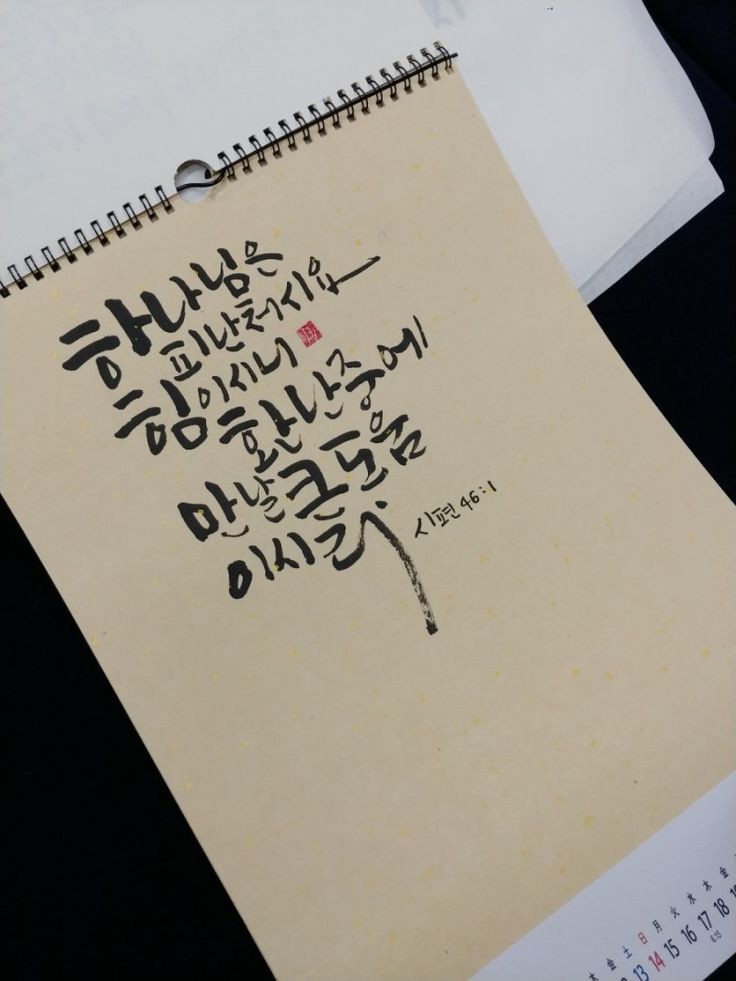 하나님은
피난처시요
힘이시니
환난 중에
만날 큰 도움
이시라
시편 46:1
木 金 土 日 月 火 水 木 金
13 14 15 16 17 18